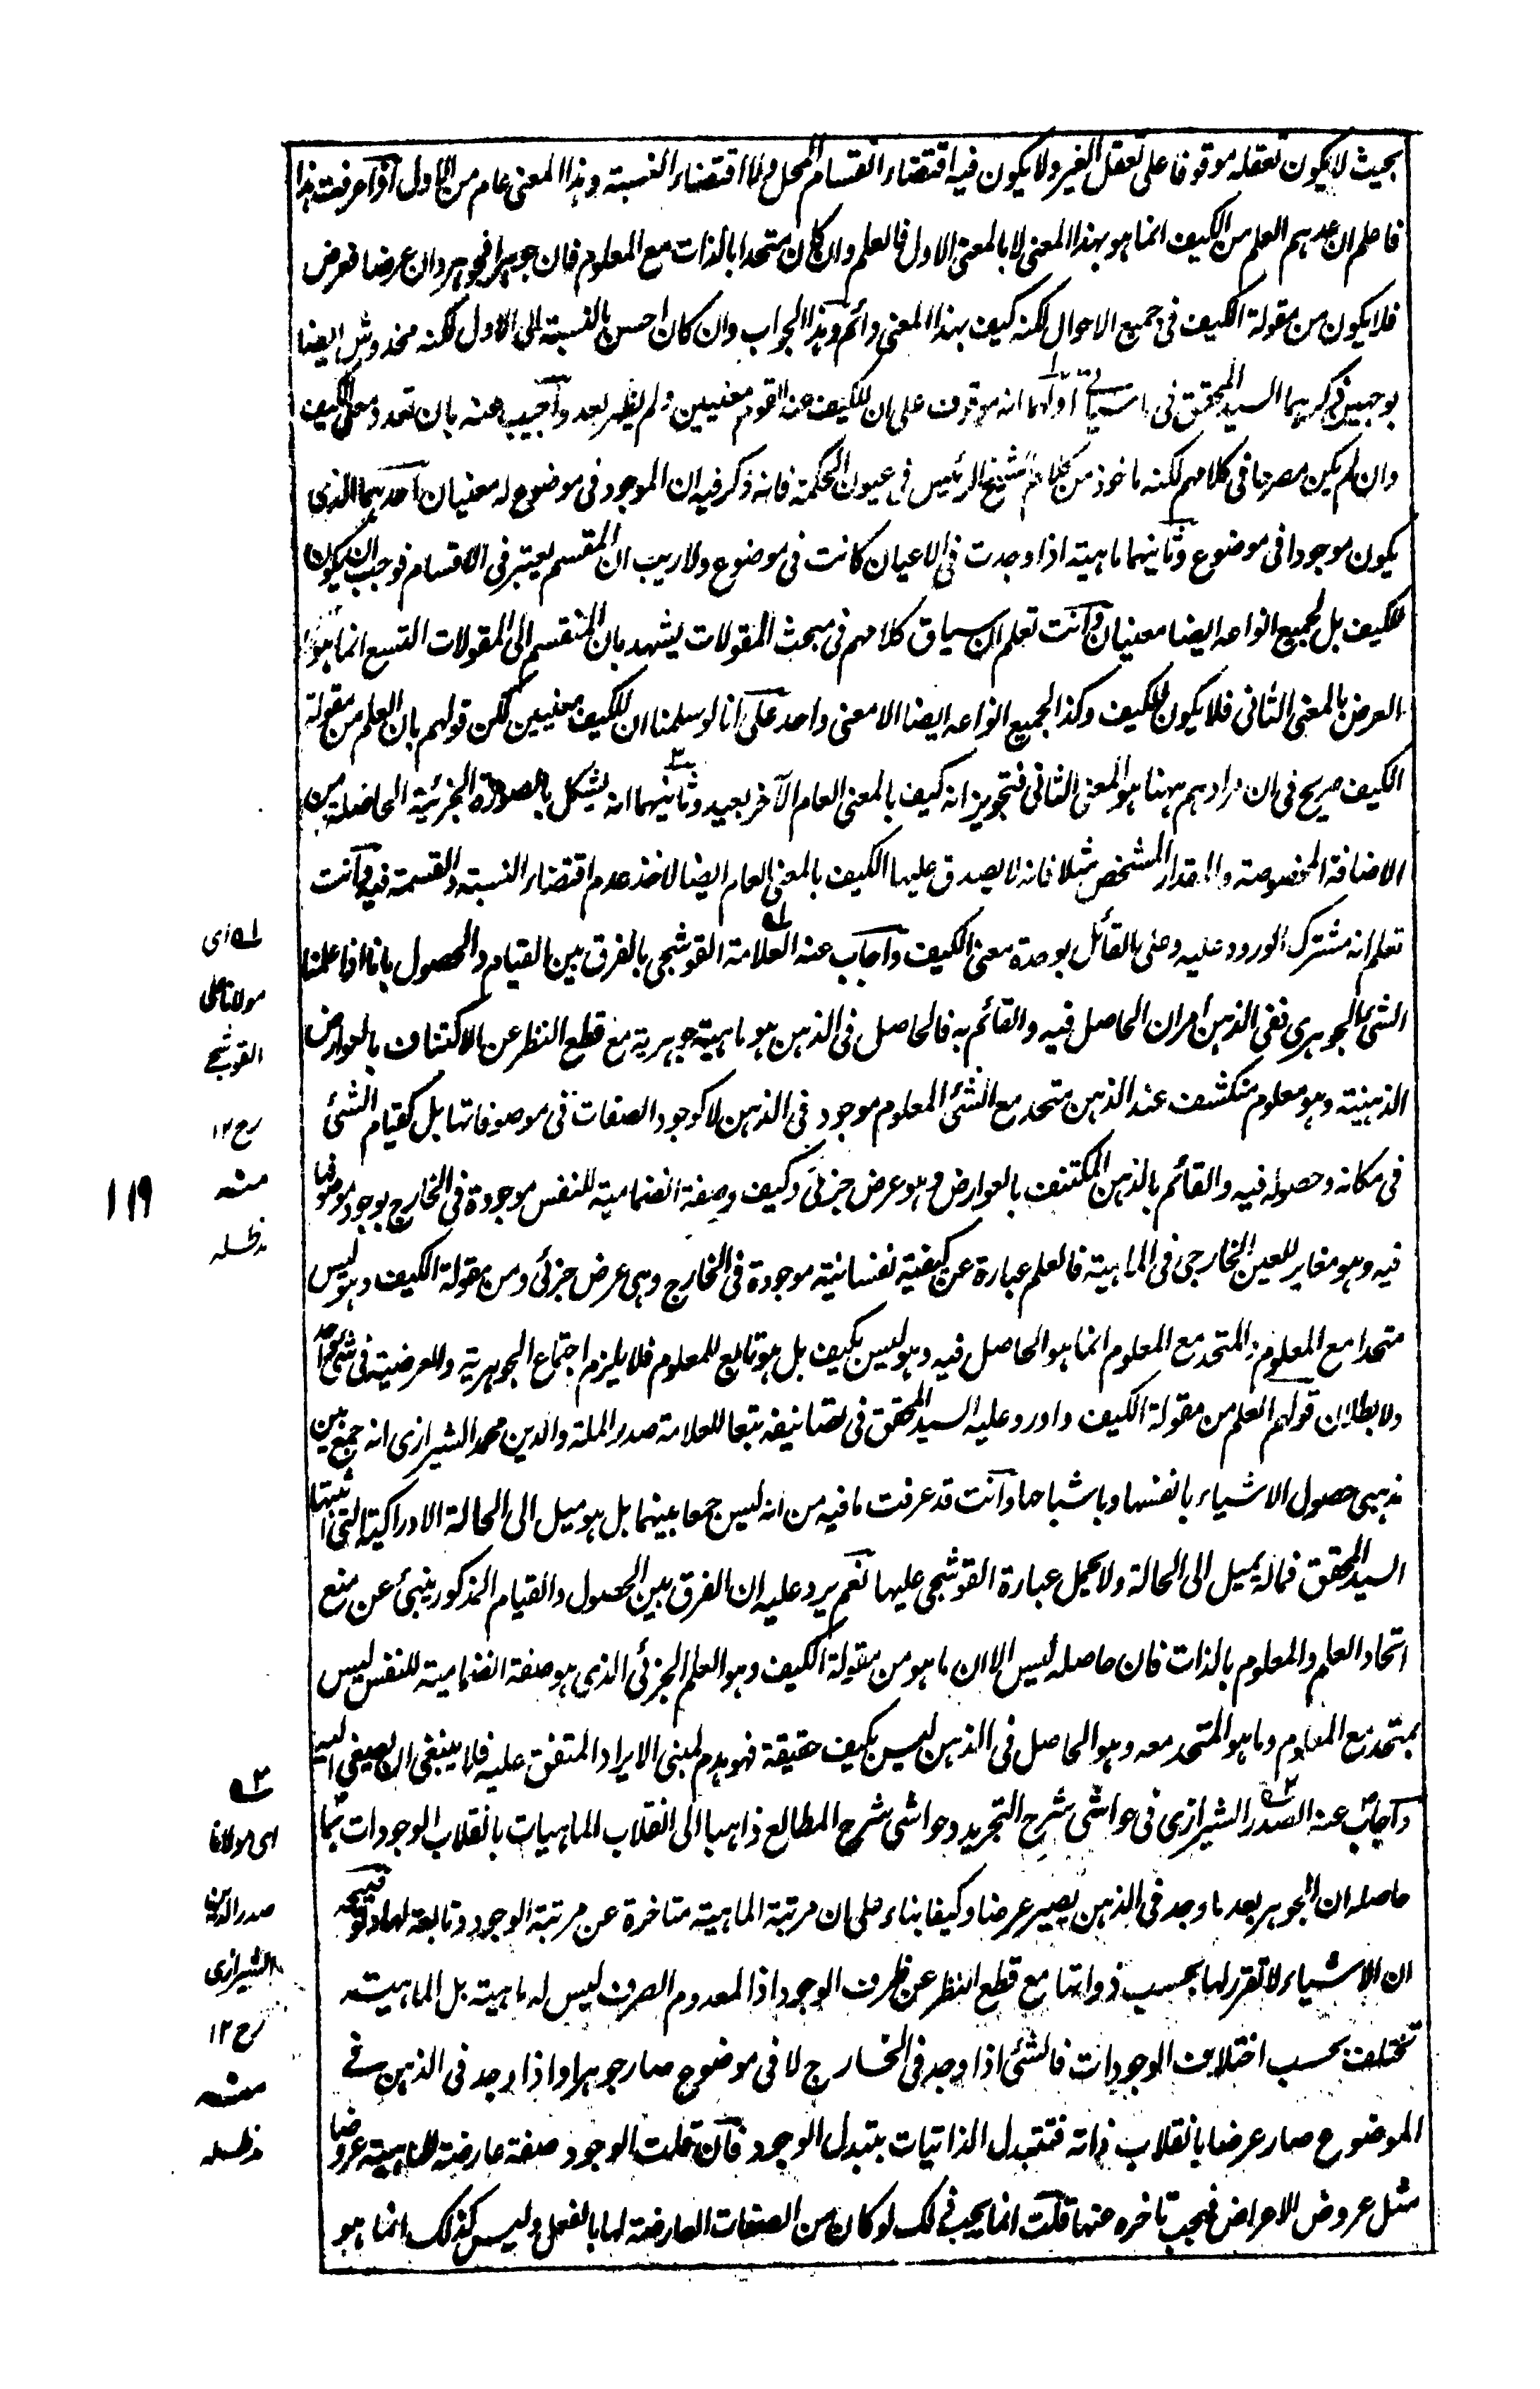 بحيث لا يكون تعقله موقوفا على تعقل الغير ولا يكون فيه اقتضاء انقسام المحل ولا اقتضاء النسبة وهذا المعنى عام من الاول اذا عرفت هذا
فاعلم ان عدهم العلم من الكيف انما هو بهذا المعنى لا بالمعنى الاول فالعلم وان كان متحدا بالذات مع المعلوم فان جوهرا فجوهر وان عرضا فعرض
فلا يكون من مقولة الكيف فى جميع الاحوال لكنه كيف بهذا المعنى دائم وهذا الجواب وان كان احسن بالنسبة الى الاول لكنه مخدوش ايضا
بوجهين ذكرهما السيد المحقق فى حاشية اولهما انه موقوف على ان للكيف عند القوم معنيين ولم يظهر بعد واجيب عنه بان تعدد معنى الكيف
وان لم يكن مصرحا فى كلامهم لكنه ماخوذ من كلام الشيخ الرئيس فى عيون الحكمة فانه ذكر فيه ان الموجود فى موضوع له معنيان احدهما الذى
يكون موجودا فى موضوع وثانيهما ماهية اذا وجدت فى الاعيان كانت فى موضوع ولا ريب ان المقسم يعتبر فى الاقسام فوجب ان يكون
للكيف بل لجميع انواعه ايضا معنيان وانت تعلم ان سياق كلامهم فى مبحث المقولات يشهد بان المنقسم الى المقولات التسع انما هو
العرض بالمعنى الثانى فلا يكون للكيف وكذا لجميع انواعه ايضا الا معنى واحد على انا لو سلمنا ان للكيف معنيين لكن قولهم بان العلم من مقولة
الكيف صريح فى ان مرادهم ههنا هو المعنى الثانى فتجويز انه كيف بالمعنى العام الآخر بعيد وثانيهما انه يشكل بالصورة الجزئية الحاصلة من
الاضافة المخصوصة والمقدار المشخص مثلا فانه لا يصدق عليها الكيف بالمعنى العام ايضا لاخذ عدم اقتضاء النسبة والقسمة فيه وانت
تعلم انه مشترك الورود عليه وعلى القائل بوحدة معنى الكيف واجاب عنه العلامة القوشجى بالفرق بين القيام والحصول بانا اذا علمنا
الشئ الجوهرى ففى الذهن امران الحاصل فيه والقائم به فالحاصل فى الذهن هو ماهية جوهرية مع قطع النظر عن الاكتناف بالعوارض
الذهنية وهو معلوم منكشف عند الذهن متحد مع الشئ المعلوم موجود فى الذهن لا كوجود الصفات فى موصوفاتها بل كقيام الشئ
فى مكانه وحصوله فيه والقائم بالذهن المكتنف بالعوارض وهو عرض جزئى وكيف وصفة انضمامية للنفس موجودة فى الخارج بوجود موصوفها
فيه وهو مغاير للعين الخارجى فى الماهية فالعلم عبارة عن كيفية نفسانية موجودة فى الخارج وهى عرض جزئى ومن مقولة الكيف وهو ليس
متحدا مع المعلوم والمتحد مع المعلوم انما هو الحاصل فيه وهو ليس بكيف بل هو تابع للمعلوم فلا يلزم اجتماع الجوهرية والعرضية فى شئ واحد
ولا بطلان قولهم العلم من مقولة الكيف واورد عليه السيد المحقق فى تصانيفه تبعا للعلامة صدر الملة والدين محمد الشيرازى انه جمع بين
مذهبى حصول الاشياء بانفسها وباشباحها وانت قد عرفت ما فيه من انه ليس جمعا بينهما بل هو ميل الى الحالة الادراكية التى اثبتها
السيد المحقق فماله يميل الى الحالة ولا يحمل عبارة القوشجى عليها نعم يرد عليه ان الفرق بين الحصول والقيام المذكور ينبئ عن منع
اتحاد العلم والمعلوم بالذات فان حاصله ليس الا ان ما هو من مقولة الكيف وهو العلم الجزئى الذى هو صفة انضمامية للنفس ليس
بمتحد مع المعلوم وما هو المتحد معه وهو الحاصل فى الذهن ليس بكيف حقيقة فهو هدم لمبنى الايراد المتفق عليه فلا ينبغى ان يصغى اليه
واجاب عنه الصدر الشيرازى فى حواشى شرح التجريد وحواشى شرح المطالع ذاهبا الى انقلاب الماهيات بانقلاب الوجودات بما
حاصله ان الجوهر بعد ما وجد فى الذهن يصير عرضا وكيفا بناء على ان مرتبة الماهية متاخرة عن مرتبة الوجود وتابعة لها وتوضيحه
ان الاشياء لا تقرر لها بحسب ذواتها مع قطع النظر عن ظرف الوجود اذ المعدوم الصرف ليس له ماهية بل الماهية
تختلف بحسب اختلاف الوجودات فالشئ اذا وجد فى الخارج لا فى موضوع صار جوهرا واذا وجد فى الذهن فى
الموضوع صار عرضا بانقلاب ذاته فتتبدل الذاتيات بتبدل الوجود فان قلت الوجود صفة عارضة للماهية عروضا
مثل عروض الاعراض فيجب تاخره عنها قلت انما يجب ذلك لو كان من الصفات العارضة لها بالفعل وليس كذلك انما هو
له اى
مولانا على
القوشجى
رح ١٢
منه
مد ظله
١١٩
٢ه
اى مولانا
صدر الدين
الشيرازى
رح ١٢
منه
مد ظله